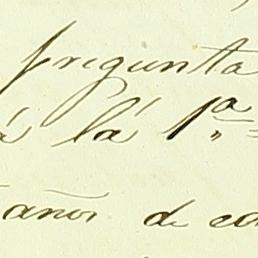 pregunta
á lá 1ª
años de